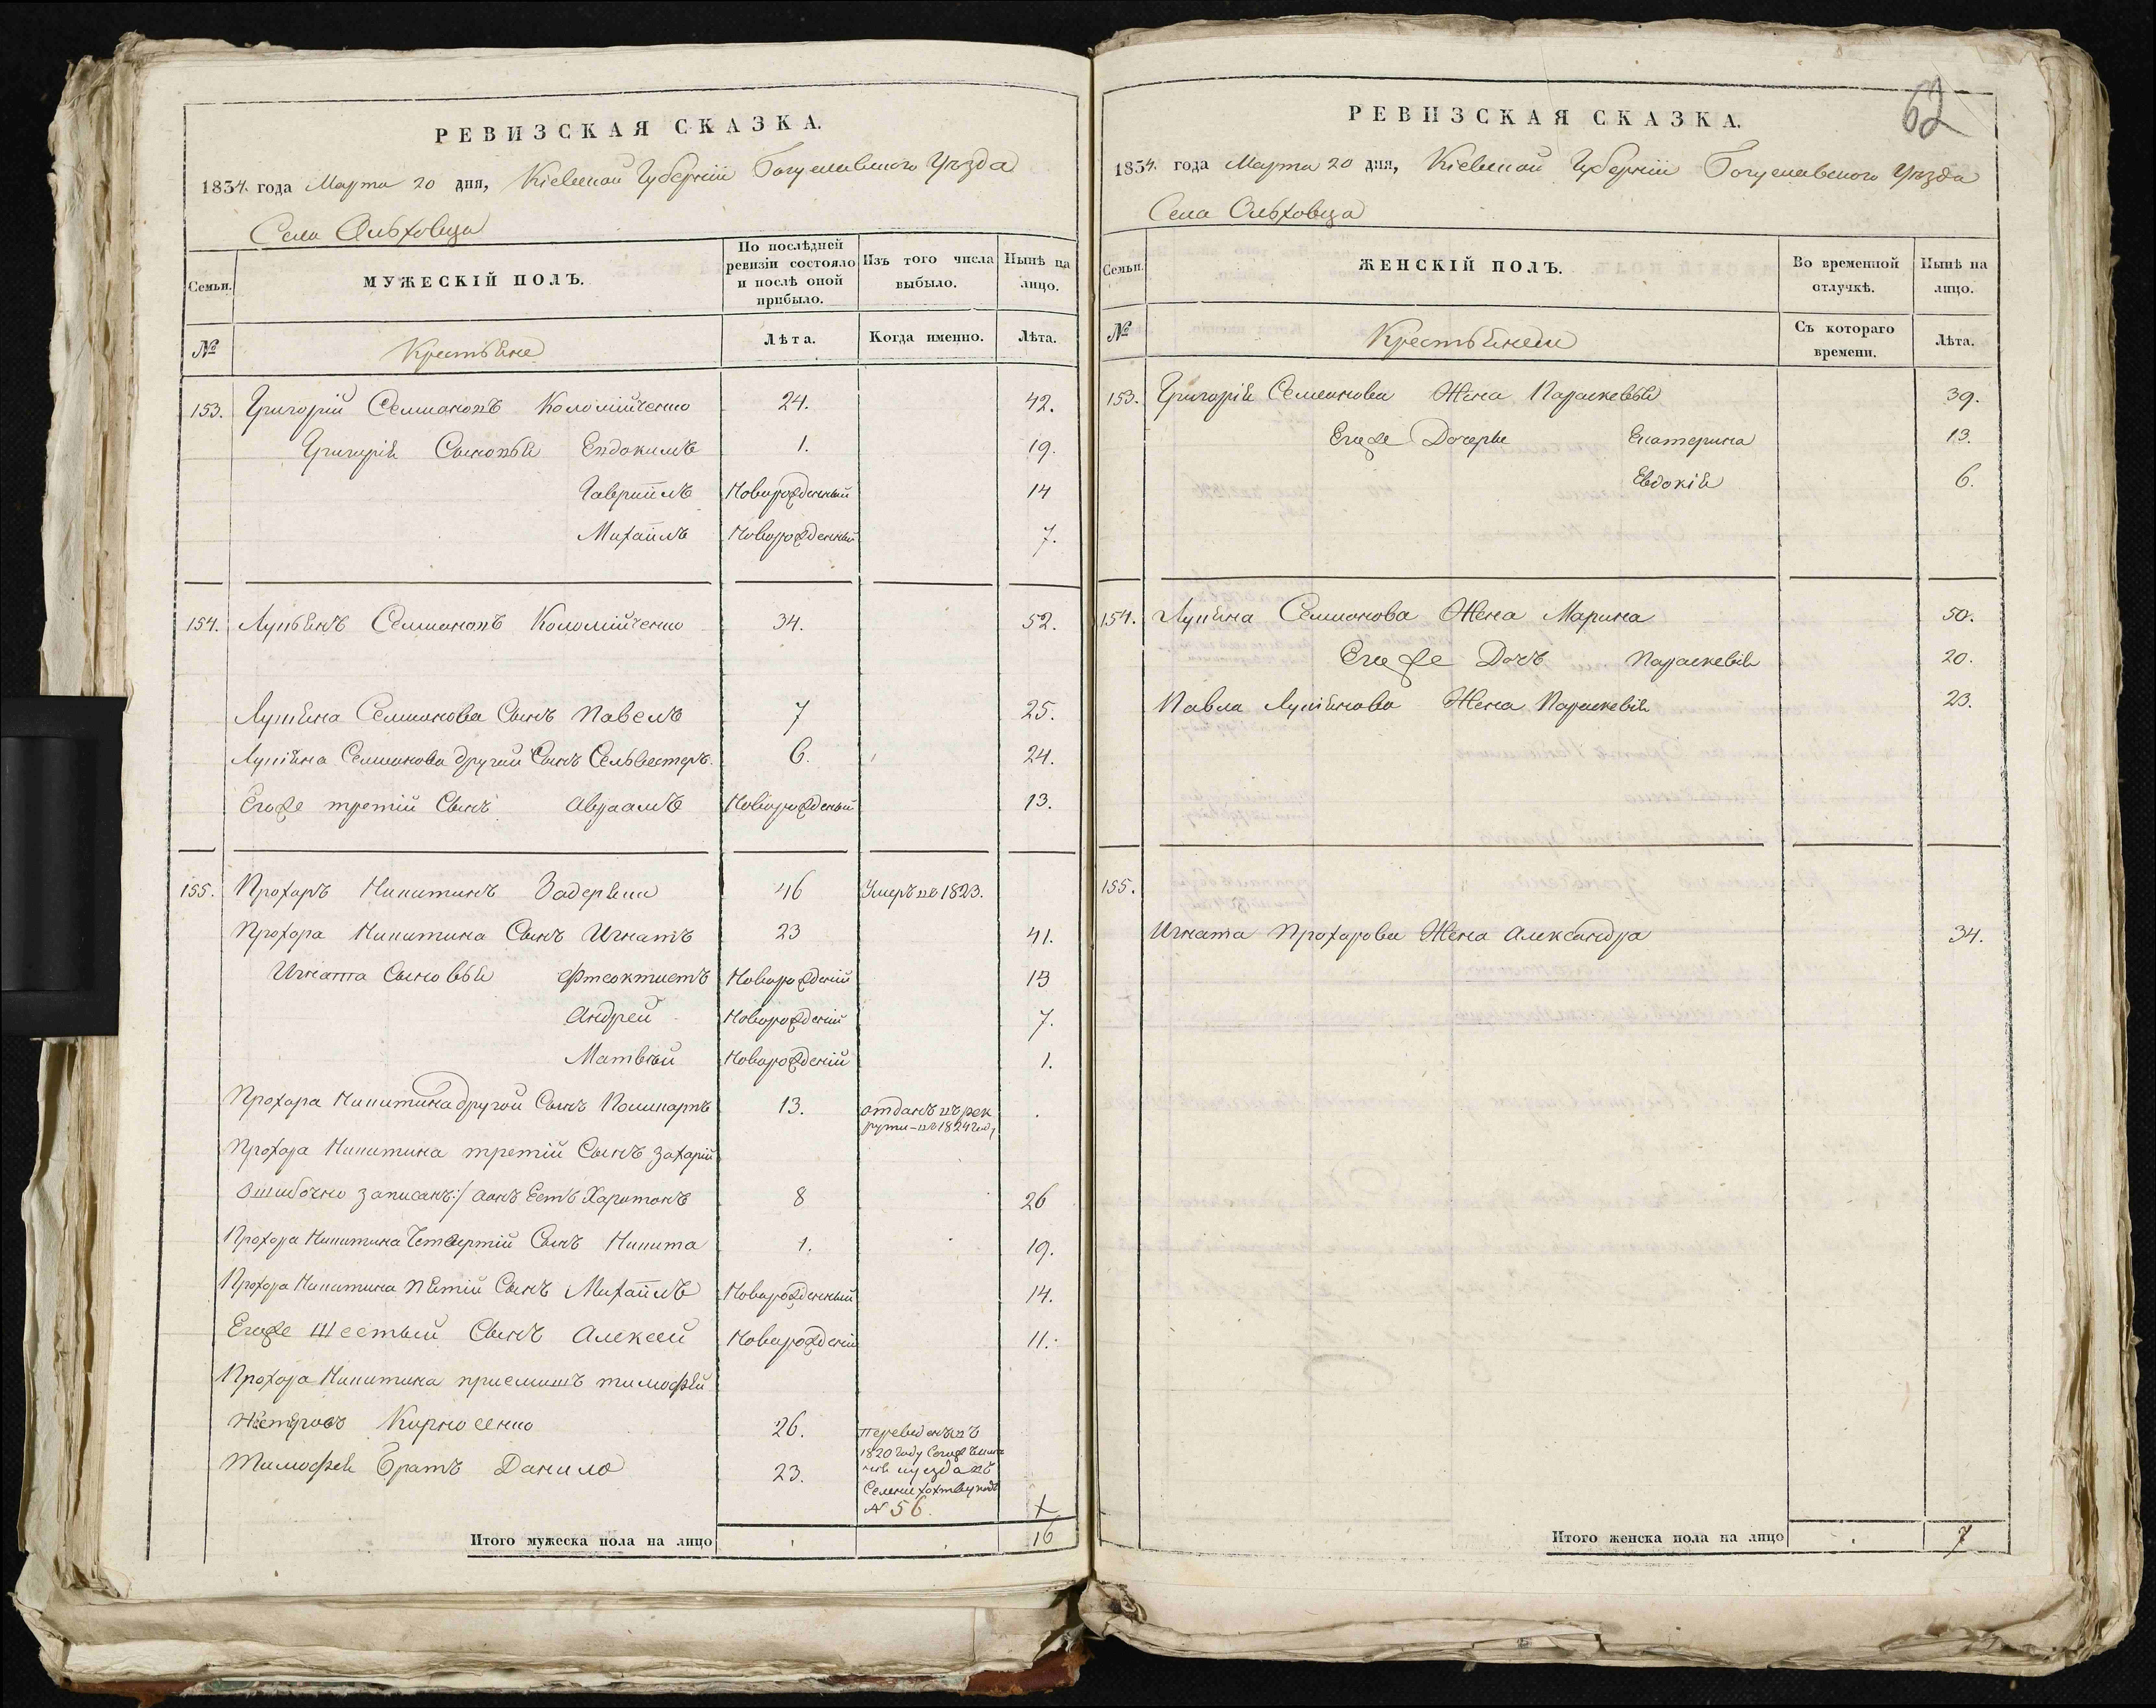 РЕВИЗСКАЯ СКАЗКА.
1834. года Марта 20 дня, Кіевской Губерніи Богуславского Уѣзда
Села Ольховца
Семьи.
МУЖЕСКІЙ ПОЛЪ.
По послѣдней ревизіи состояло и послѣ оной прибыло.
Изъ того числа выбыло.
Нынѣ на лицо.
№
Крестьяне
Лѣта.
Когда именно.
Лѣта.
153. Григорій Семионовъ Коломійченко 24. 42.
Григорія Сыновья Евдокимъ 1. 19.
Гавріилъ Новорожденный 14
Михаилъ Новорожденный 7.
154. Лукьянъ Семионовъ Коломійченко 34. 52.
Лукіяна Семионова Сынъ Павелъ 7 25.
Лукіяна Семионова другий Сынъ Сельвестеръ. 6. 24.
Егоже третій Сынъ Авраамъ Новорожденый 13.
155. Прохоръ Никитинъ Задеряка 46 Умеръ въ 1823.
Прохора Никитина Сынъ Игнатъ 23 41.
Игната Сыновья Фтеоктистъ Новорожденій 13
Андрей Новорожденій 7.
Матвѣй Новорожденій 1.
Прохора Никитина другой Сынъ Поликарпъ 13. отданъ въ рек
руты въ 1824 году
Прохора Никитина третій Сынъ Захарій
Ошибочно записанъ:/ аонъ Есть Харитонъ 8 26
Прохора Никитина Четвертій Сынъ Никита 1. 19.
Прохора Никитина Пятій Сынъ Михаилъ Новорожденный 14.
Егоже Шестый Сынъ Алексей Новорожденій 11.
Прохора Никитина приемишъ тимофей
Петровъ Корносенко 26. переведенъ въ
1820 году
Тимофея Братъ Данило 23.
Селеніе
№ 56.
Итого мужеска пола на лицо 16
62
РЕВИЗСКАЯ СКАЗКА.
1834. года Марта 20 дня, Кіевской Губерніи Богуславского Уѣзда
Села Ольховца
Семьи.
ЖЕНСКІЙ ПОЛЪ.
Во временной отлучкѣ.
Нынѣ на лицо.
№
Крестьянки
Съ котораго времени.
Лѣта.
153. Григорія Семионова Жена Параскевья 39.
Егоже Дочерье Екатерина 13.
Евдокія 6.
154. Лукіяна Семионова Жена Марина 50.
Егоже Дочь Параскевія 20.
Павла Лукіянова Жена Параскевія 23.
155.
Игната Прохорова Жена Александра 34.
Итого женска пола на лицо 7